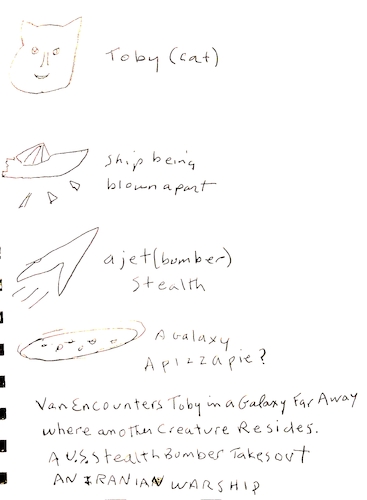 Toby (cat)
ship being
blown apart
a jet (bomber)
Stealth
A Galaxy
A pizza pie?
Van Encounters Toby in a Galaxy Far Away
where another Creature Resides.
A U.S. Stealth Bomber Takes out
AN IRANIAN WARSHIP